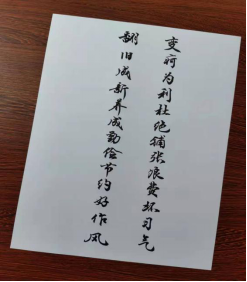 变废为利杜绝铺张浪费坏习气
翻旧成新养成勤俭节约好作风